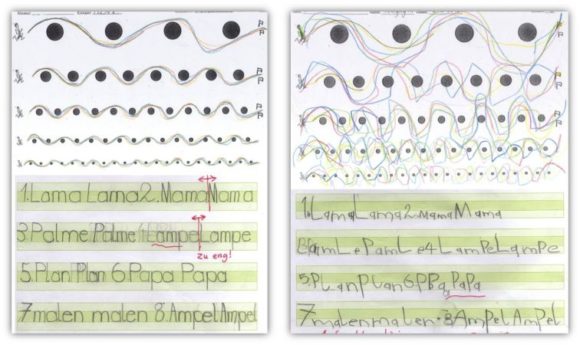 1. Lama Lama 2. Mama Mama
3. Palme Palme 4. Lampe Lampe
zu eng!
5. Plan Plan 6. Papa Papa
7 malen malen 8. Ampel Ampel
1. Lama Lama 2. Mama Mama
3. PamLe PamLe 4 LamPe LamPe
5. PLan PLan 6. PaPa
7 malen malen 8 AmPeL AmPeL